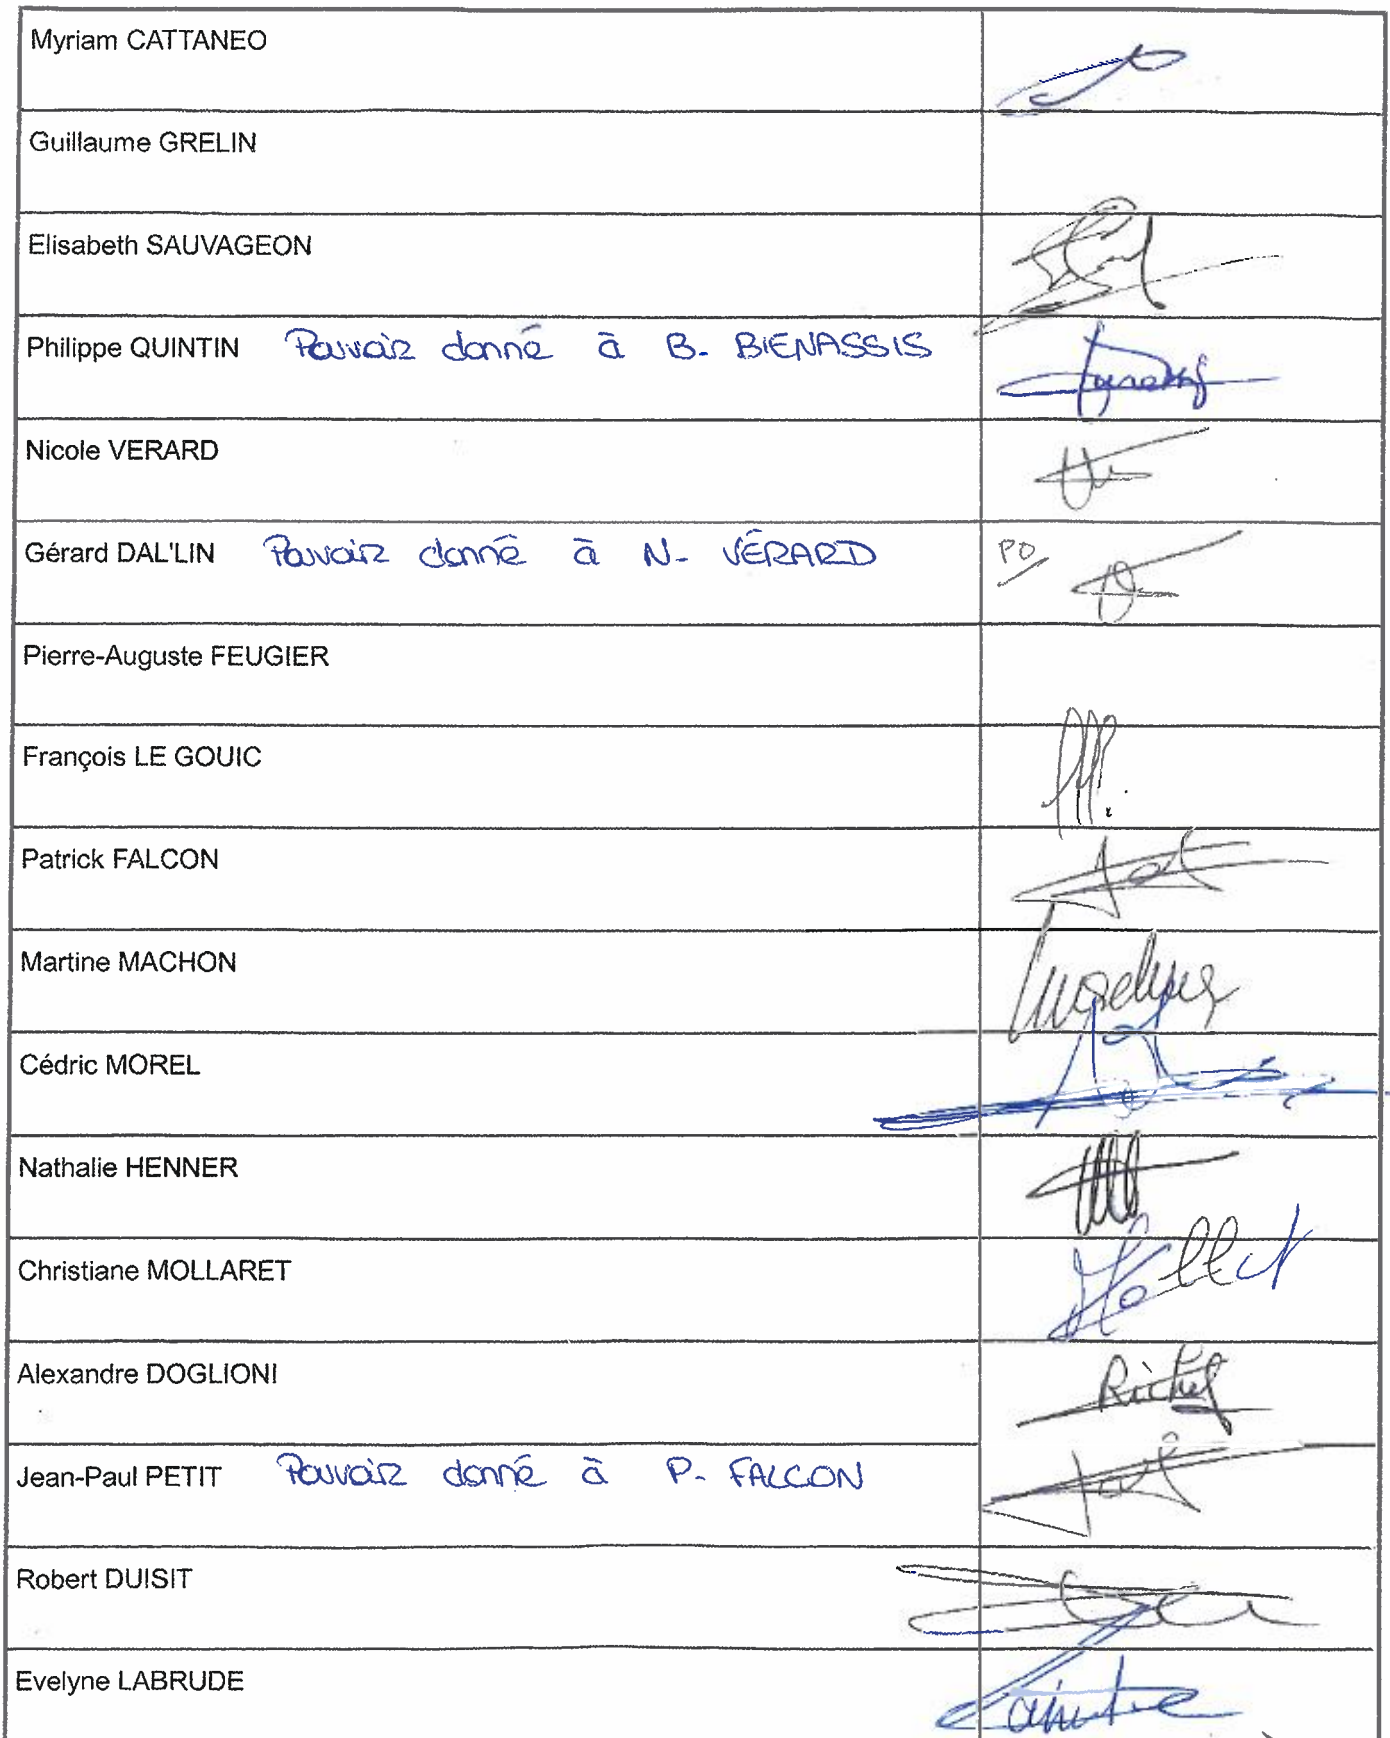 Myriam CATTANEO
Guillaume GRELIN
Elisabeth SAUVAGEON
Philippe QUINTIN Pouvoir donné à B. BIENASSIS
Nicole VERARD
Gérard DAL'LIN Pouvoir donné à N. VÉRARD PO
Pierre-Auguste FEUGIER
François LE GOUIC
Patrick FALCON
Martine MACHON
Cédric MOREL
Nathalie HENNER
Christiane MOLLARET
Alexandre DOGLIONI
Jean-Paul PETIT Pouvoir donné à P. FALCON
Robert DUISIT
Evelyne LABRUDE